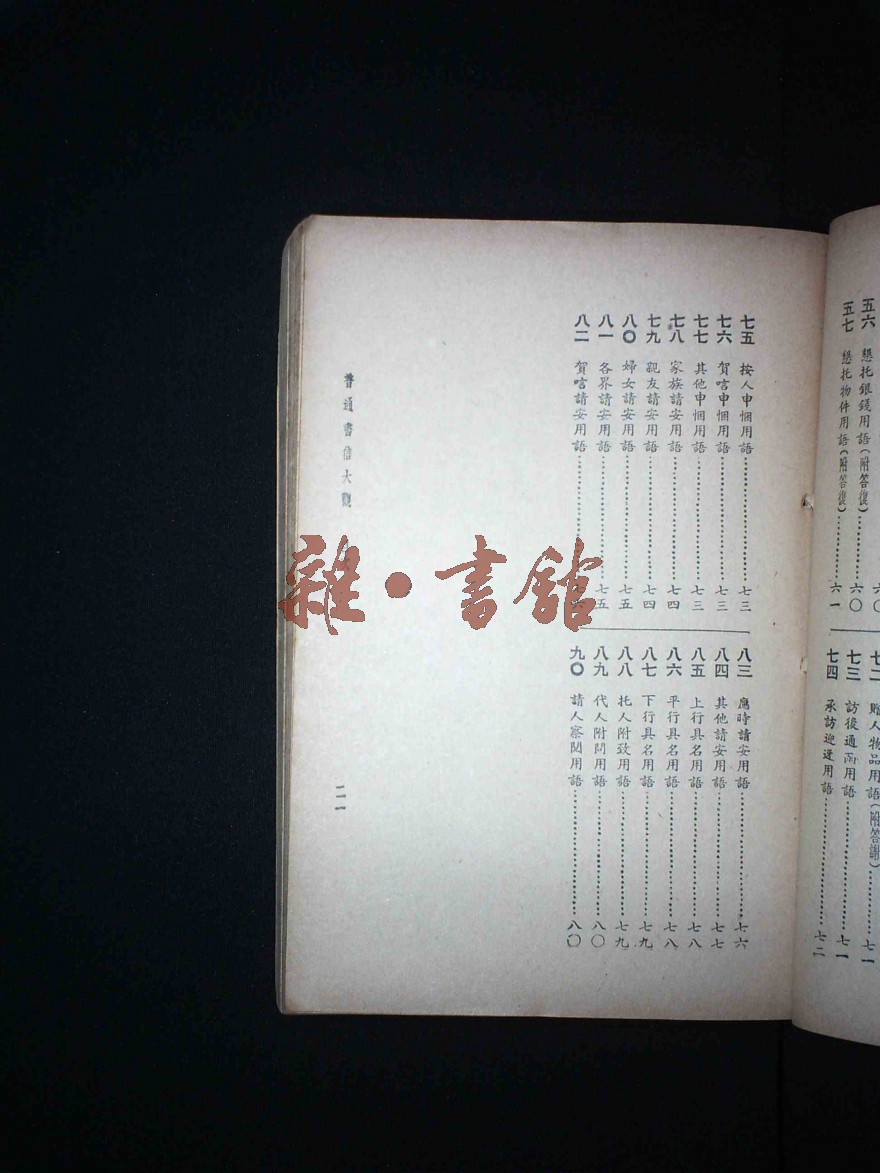 五六 懇托銀錢用語(附答復)………六〇
五七 懇托物件用語(附答復)………六一
七二 贈人物品用語(附答謝)………七一
七三 訪後通函用語………七一
七四 承訪迎迓用語………七二
七五 按人申悃用語………七三
七六 賀唁申悃用語………七三
七七 其他申悃用語………七三
七八 家族請安用語………七四
七九 親友請安用語………七四
八〇 婦女請安用語………七五
八一 各界請安用語………七五
八二 賀唁請安用語………七六
八三 應時請安用語………七六
八四 其他請安用語………七七
八五 上行具名用語………七八
八六 平行具名用語………七八
八七 下行具名用語………七九
八八 托人附致用語………七九
八九 代人附問用語………八〇
九〇 請人察閱用語………八〇
普通書信大觀
二一
雜·書館